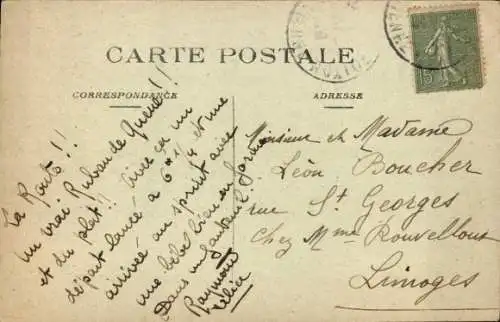 CARTE POSTALE
CORRESPONDANCE
ADRESSE
La Route!!
un vrai Ruban de Queue!!
et du plat!! Avec ça un
départ lancé à 6 et une
arrivée au sprint avec
une
Dans un fauteuil.
Raymond
Monsieur et Madame
Léon Boucher
rue St Georges
Chez Mme Rouvellout
Limoges
15